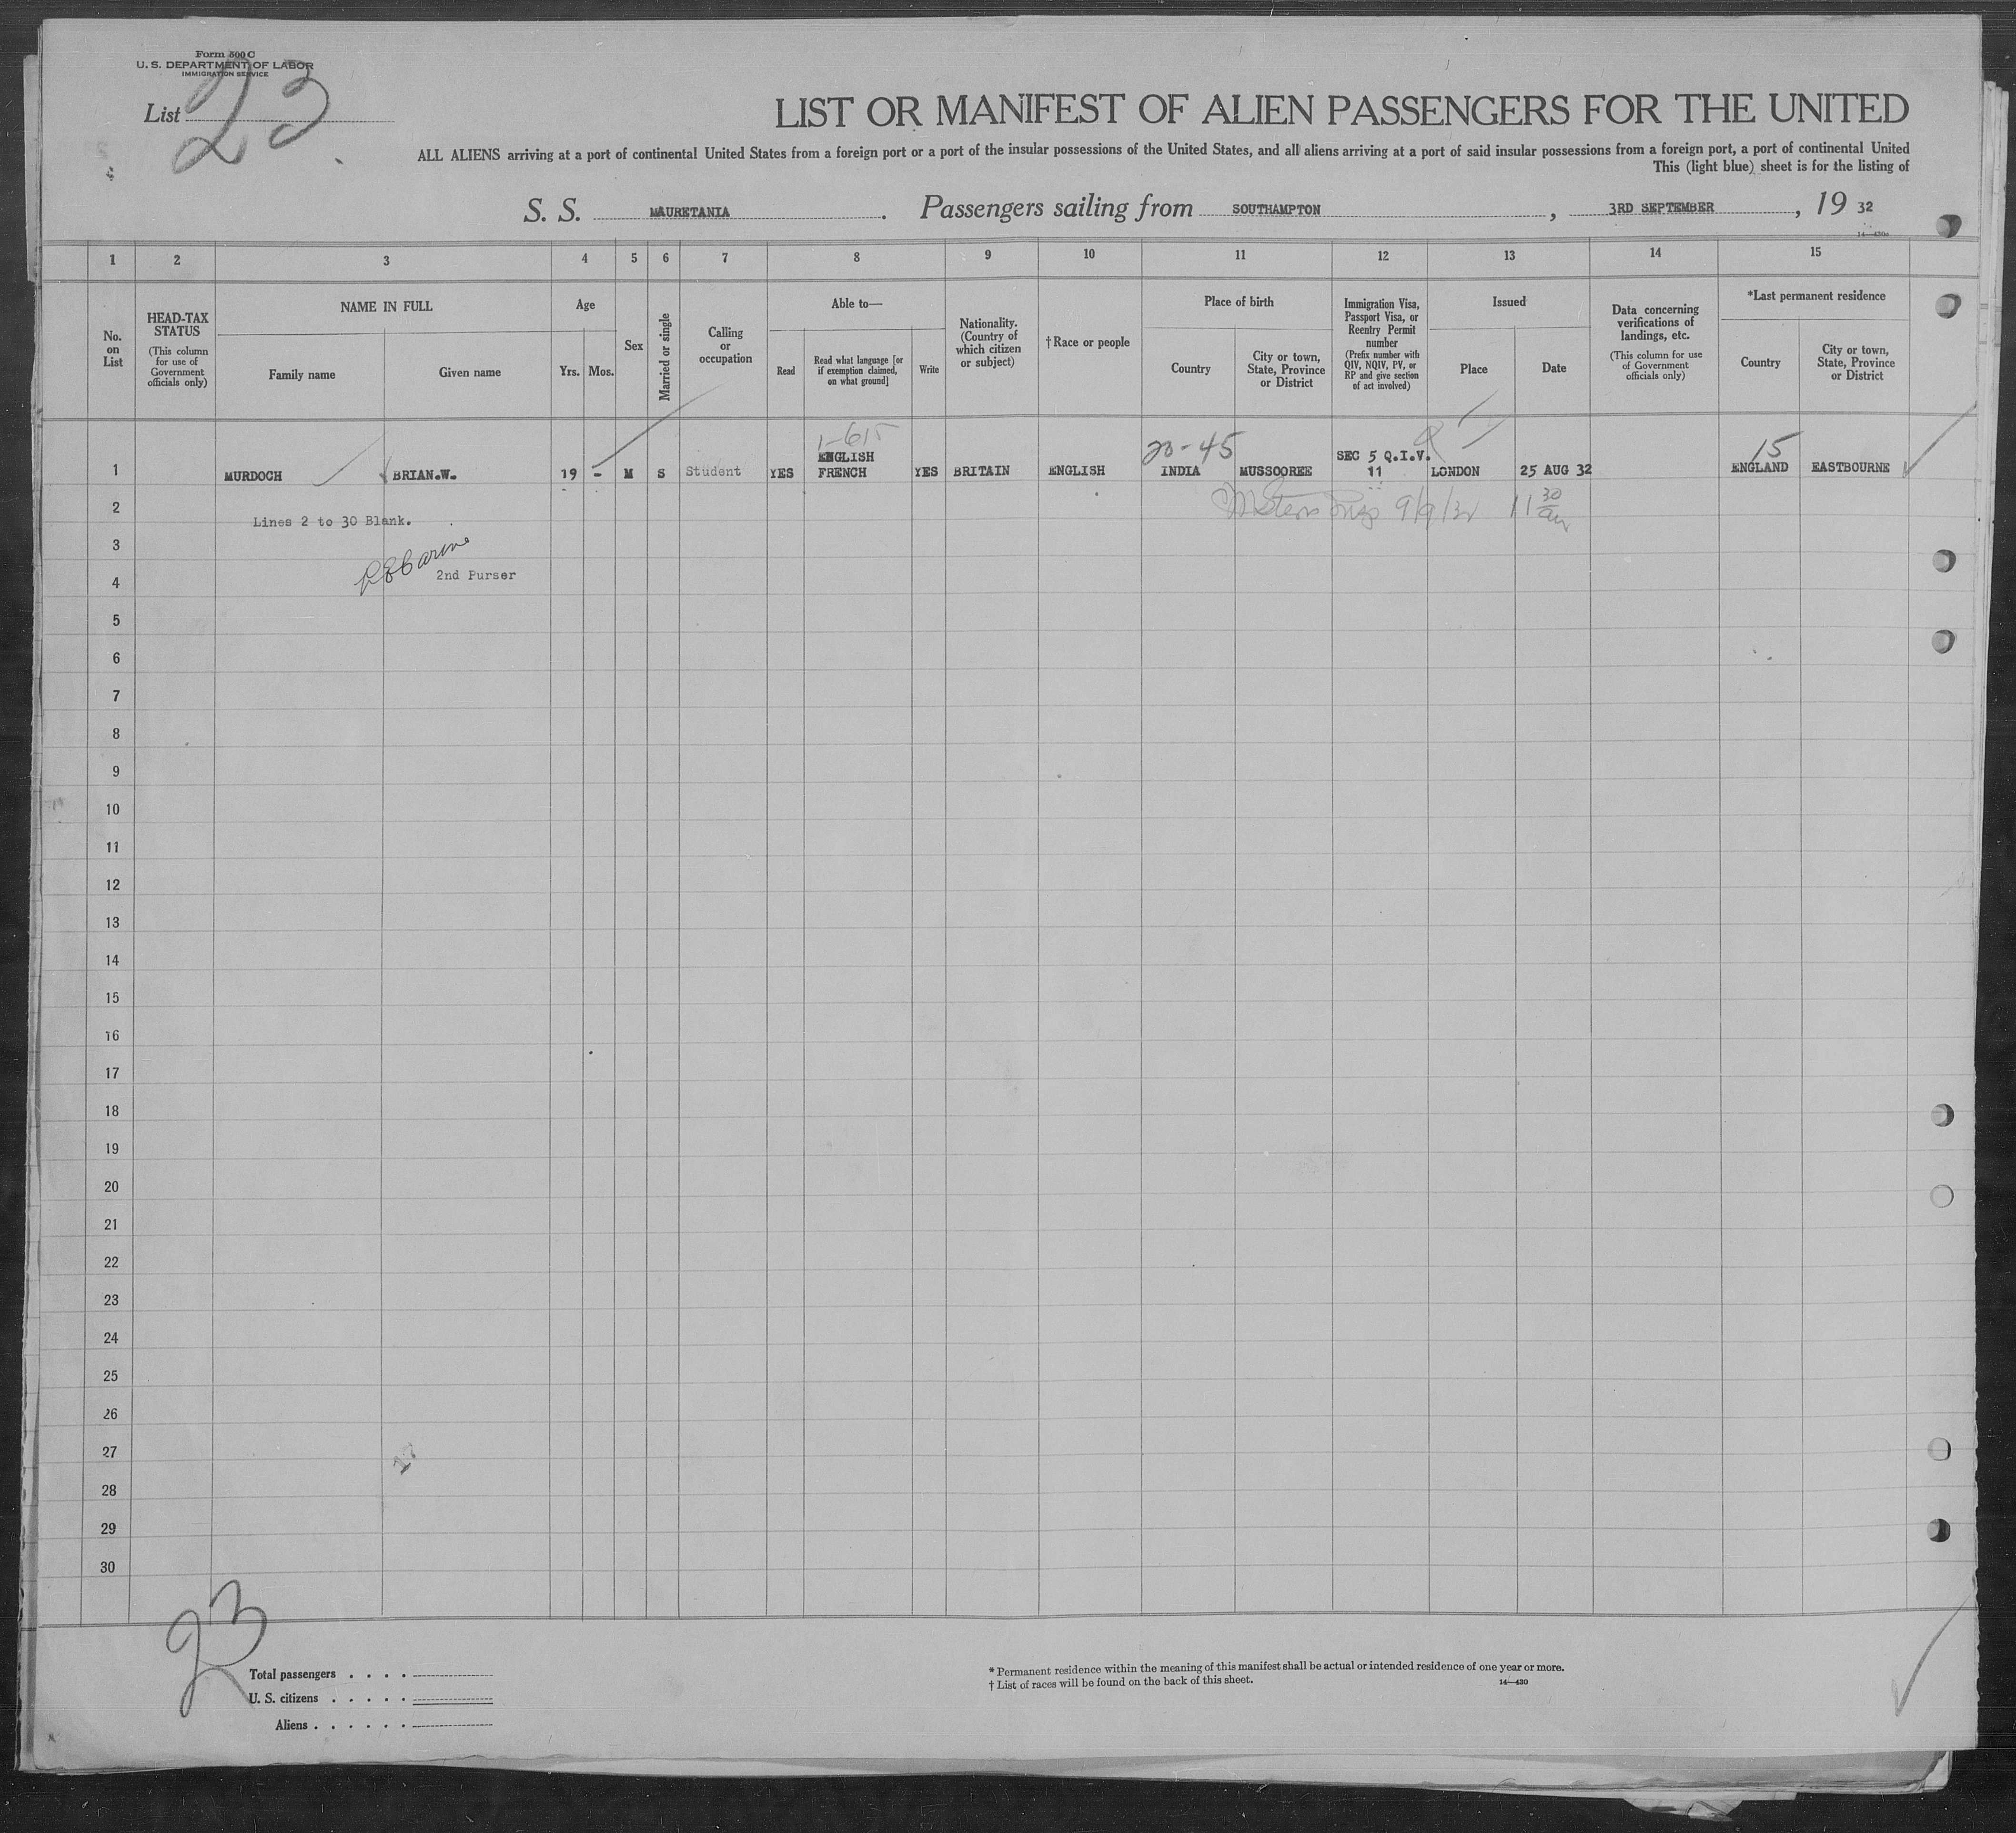 Form 500 C
U. S. DEPARTMENT OF LABOR
IMMIGRATION SERVICE
List 23
LIST OR MANIFEST OF ALIEN PASSENGERS FOR THE UNITED
ALL ALIENS arriving at a port of continental United States from a foreign port or a port of the insular possessions of the United States, and all aliens arriving at a port of said insular possessions from a foreign port, a port of continental United
This (light blue) sheet is for the listing of
S. S. MAURETANIA. Passengers sailing from SOUTHAMPTON, 3RD SEPTEMBER, 19 32
1 2 3 4 5 6 7 8 9 10 11 12 13 14 15
No. on List
HEAD-TAX STATUS
(This column for use of Government officials only)
NAME IN FULL
Family name
Given name
Age
Yrs.
Mos.
Sex
Married or single
Calling or occupation
Able to—
Read
Read what language [or if exemption claimed, on what ground]
Write
Nationality. (Country of which citizen or subject)
†Race or people
Place of birth
Country
City or town, State, Province or District
Immigration Visa, Passport Visa, or Reentry Permit number
(Prefix number with QIV, NQIV, PV, or RP and give section of act involved)
Issued
Place
Date
Data concerning verifications of landings, etc.
(This column for use of Government officials only)
*Last permanent residence
Country
City or town, State, Province or District
1-615
20-45
15
ENGLISH SEC 5 Q.I.V.
1 MURDOCH BRIAN.W. 19 - M S Student YES FRENCH YES BRITAIN ENGLISH INDIA MUSSOOREE 11 LONDON 25 AUG 32 ENGLAND EASTBOURNE
2
9/9/32 11 30 am
Lines 2 to 30 Blank.
3
4
2nd Purser
5
6
7
8
9
10
11
12
13
14
15
16
17
18
19
20
21
22
23
24
25
26
27
28
29
30
23
Total passengers . . . .
U. S. citizens . . . . .
Aliens . . . . . .
* Permanent residence within the meaning of this manifest shall be actual or intended residence of one year or more.
† List of races will be found on the back of this sheet.
14—430